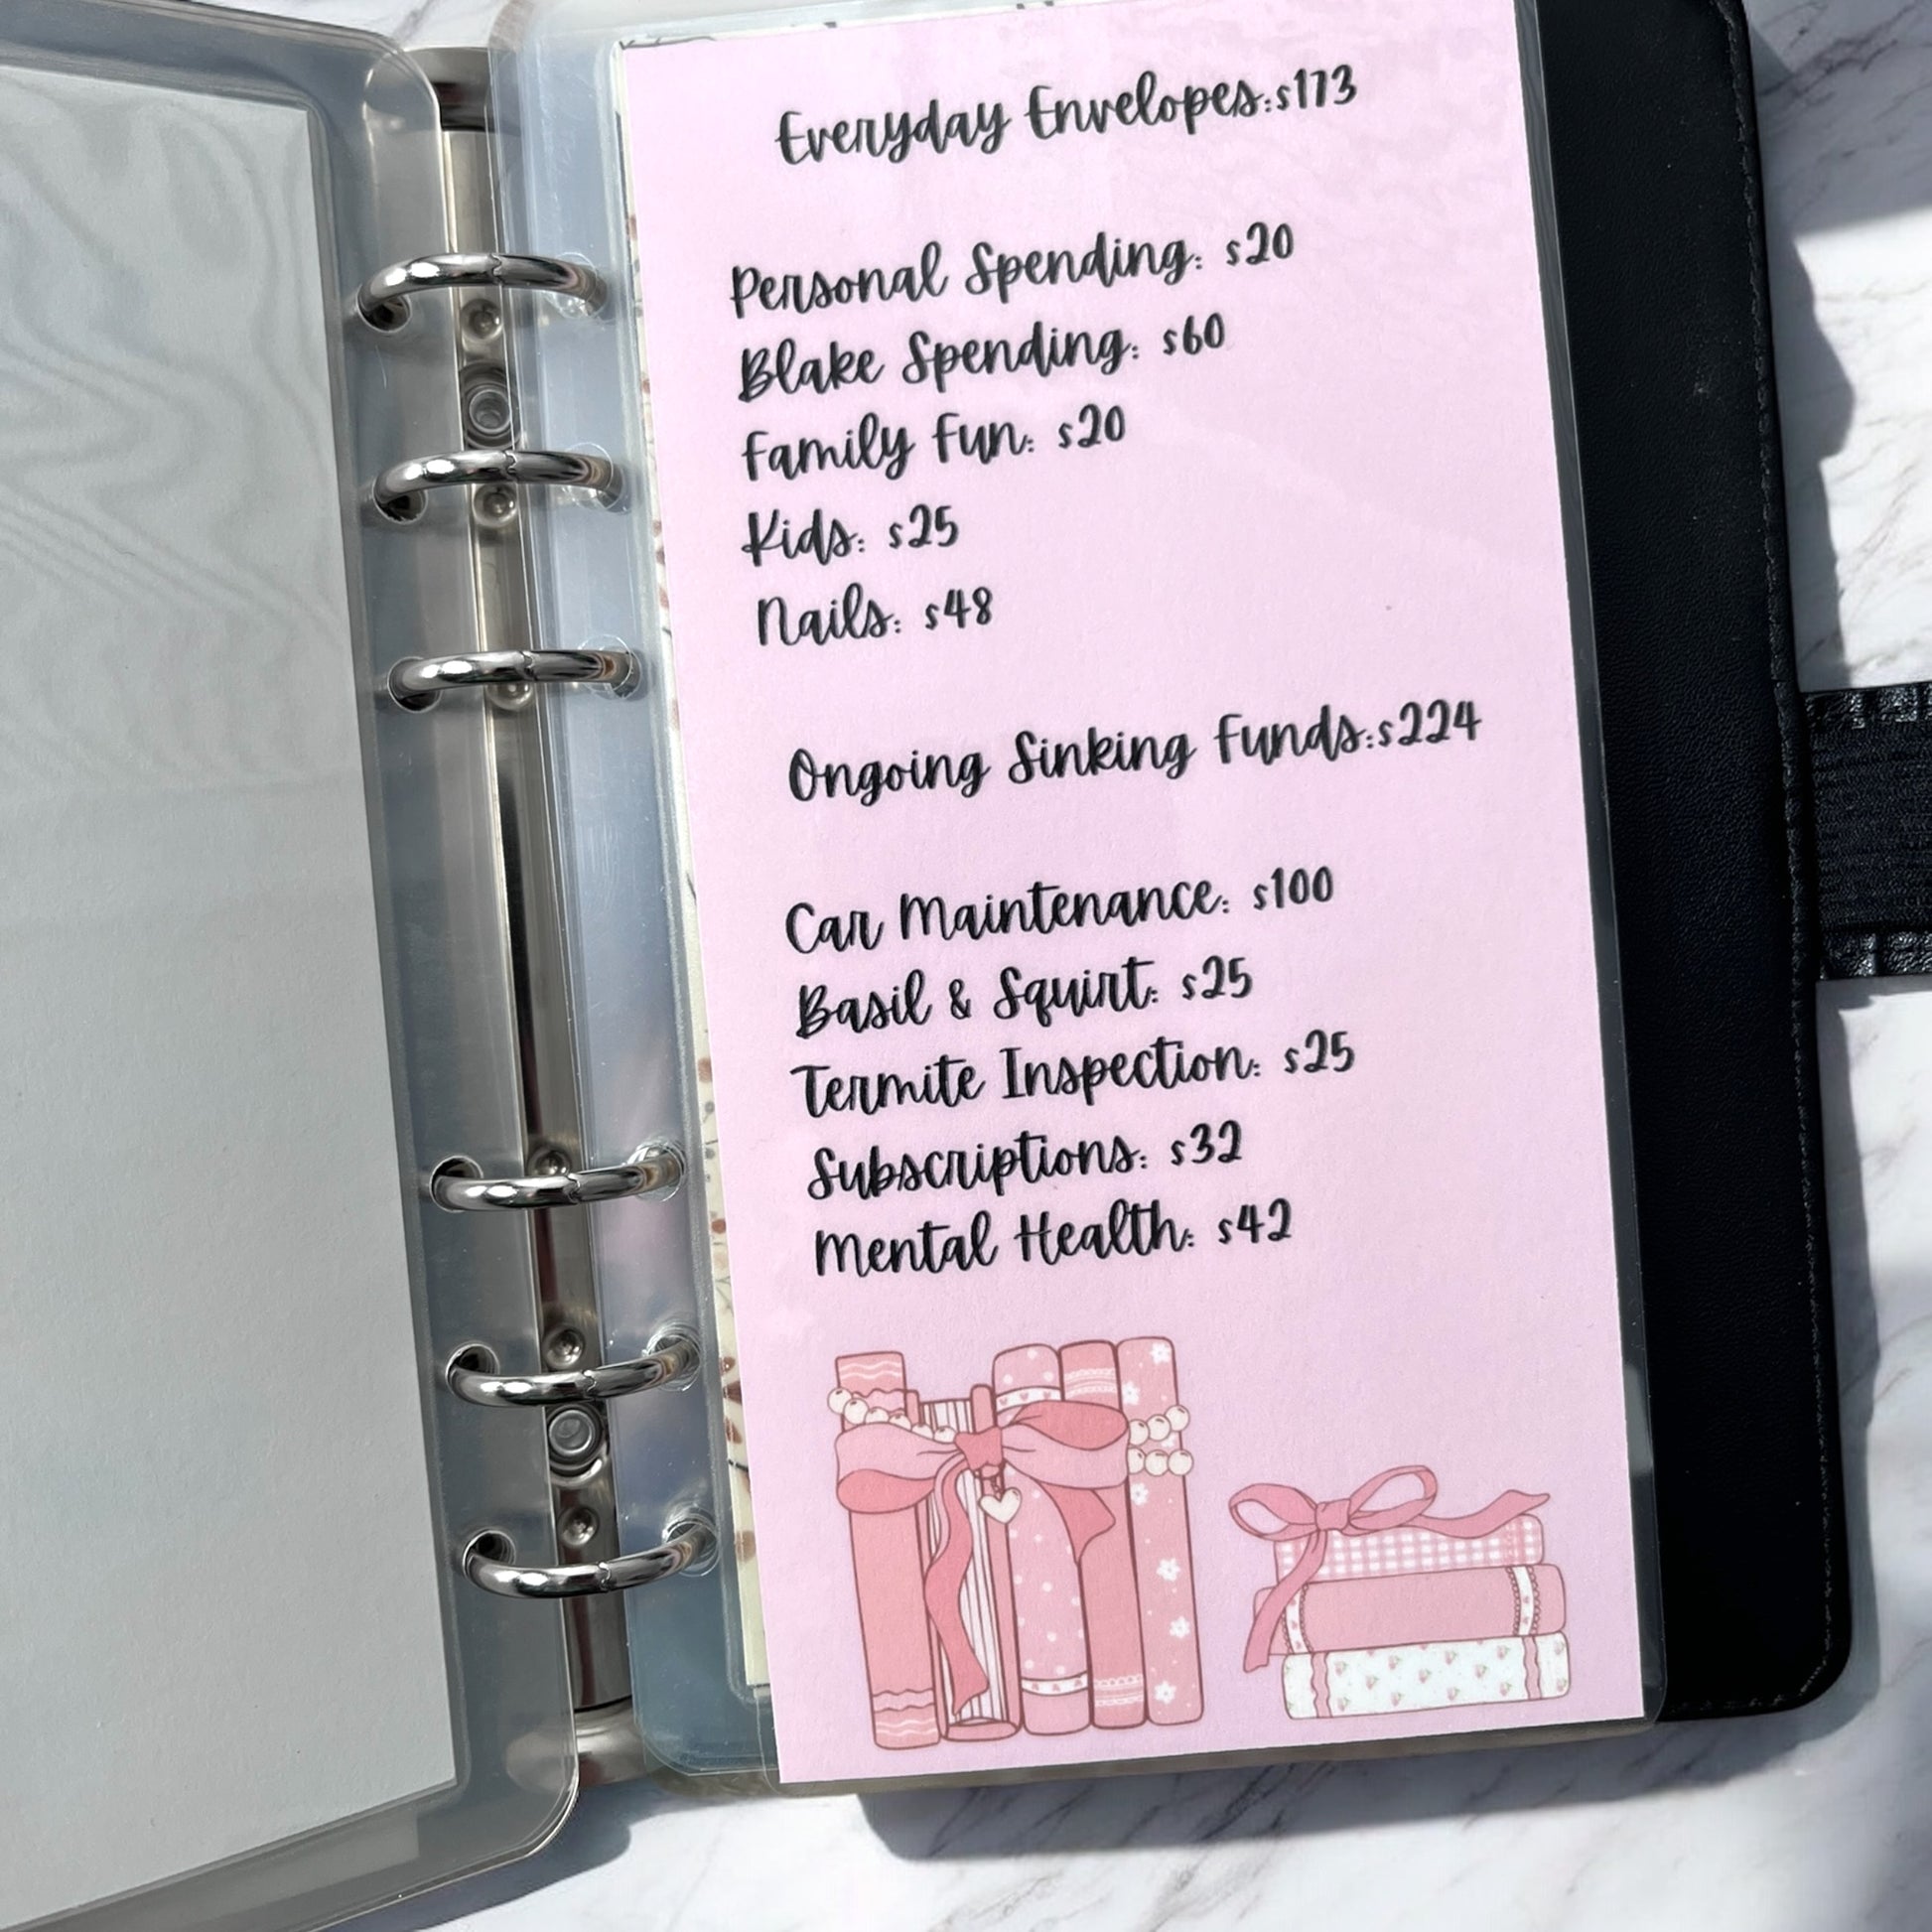 Everyday Envelopes:$173
Personal Spending: $20
Blake Spending: $60
Family Fun: $20
Kids: $25
Nails: $48
Ongoing Sinking Funds:$224
Car Maintenance: $100
Basil & Squirt: $25
Termite Inspection: $25
Subscriptions: $32
Mental Health: $42